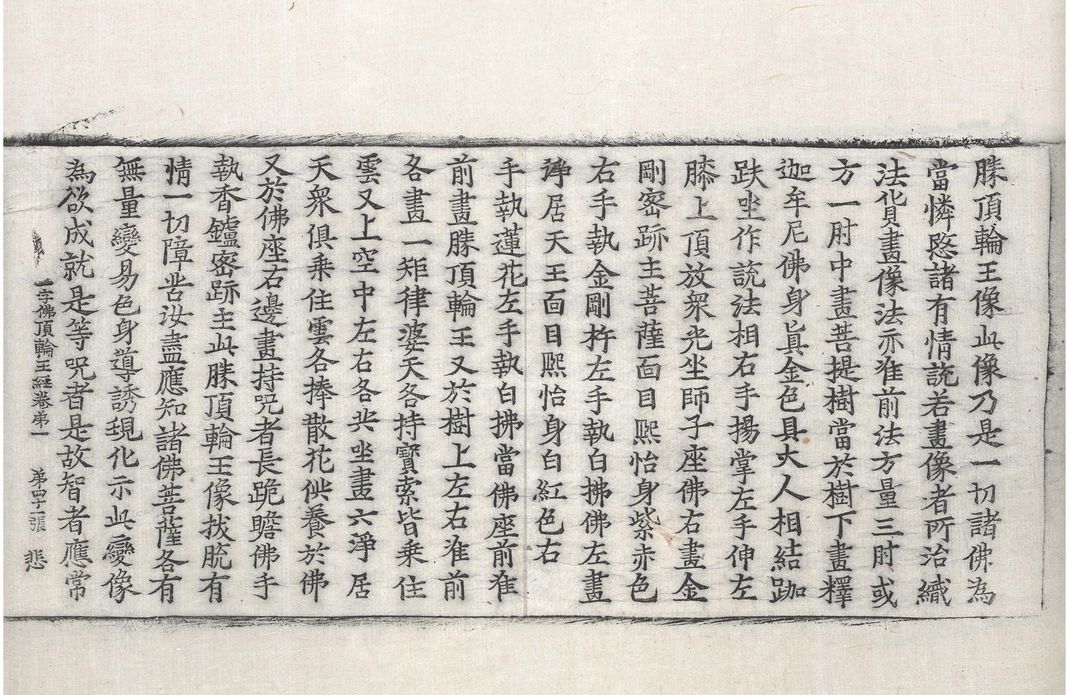 勝頂輪王像此像乃是一切諸佛為
當憐愍諸有情說若畫像者所治織
法貲畫像法亦准前法方量三肘或
方一肘中畫菩提樹當於樹下畫釋
迦牟尼佛身真金色具大人相結跏
趺坐作說法相右手揚掌左手伸左
膝上頂放衆光坐師子座佛右畫金
剛密跡主菩薩面目熙怡身紫赤色
右手執金剛杵左手執白拂佛左畫
淨居天王面目熙怡身白紅色右
手執蓮花左手執白拂當佛座前准
前畫勝頂輪王又於樹上左右准前
各畫一矩律婆天各持寶索皆乘住
雲又上空中左右各共坐畫六淨居
天衆俱乘住雲各捧散花供養於佛
又於佛座右邊畫持咒者長跪瞻佛手
執香鑪密跡主此勝頂輪王像拔脫有
情一切障苦汝盡應知諸佛菩薩各有
無量變易色身導誘現化示此變像
為欲成就是等咒者是故智者應常
一字佛頂輪王經卷第一 第四十二張 悲